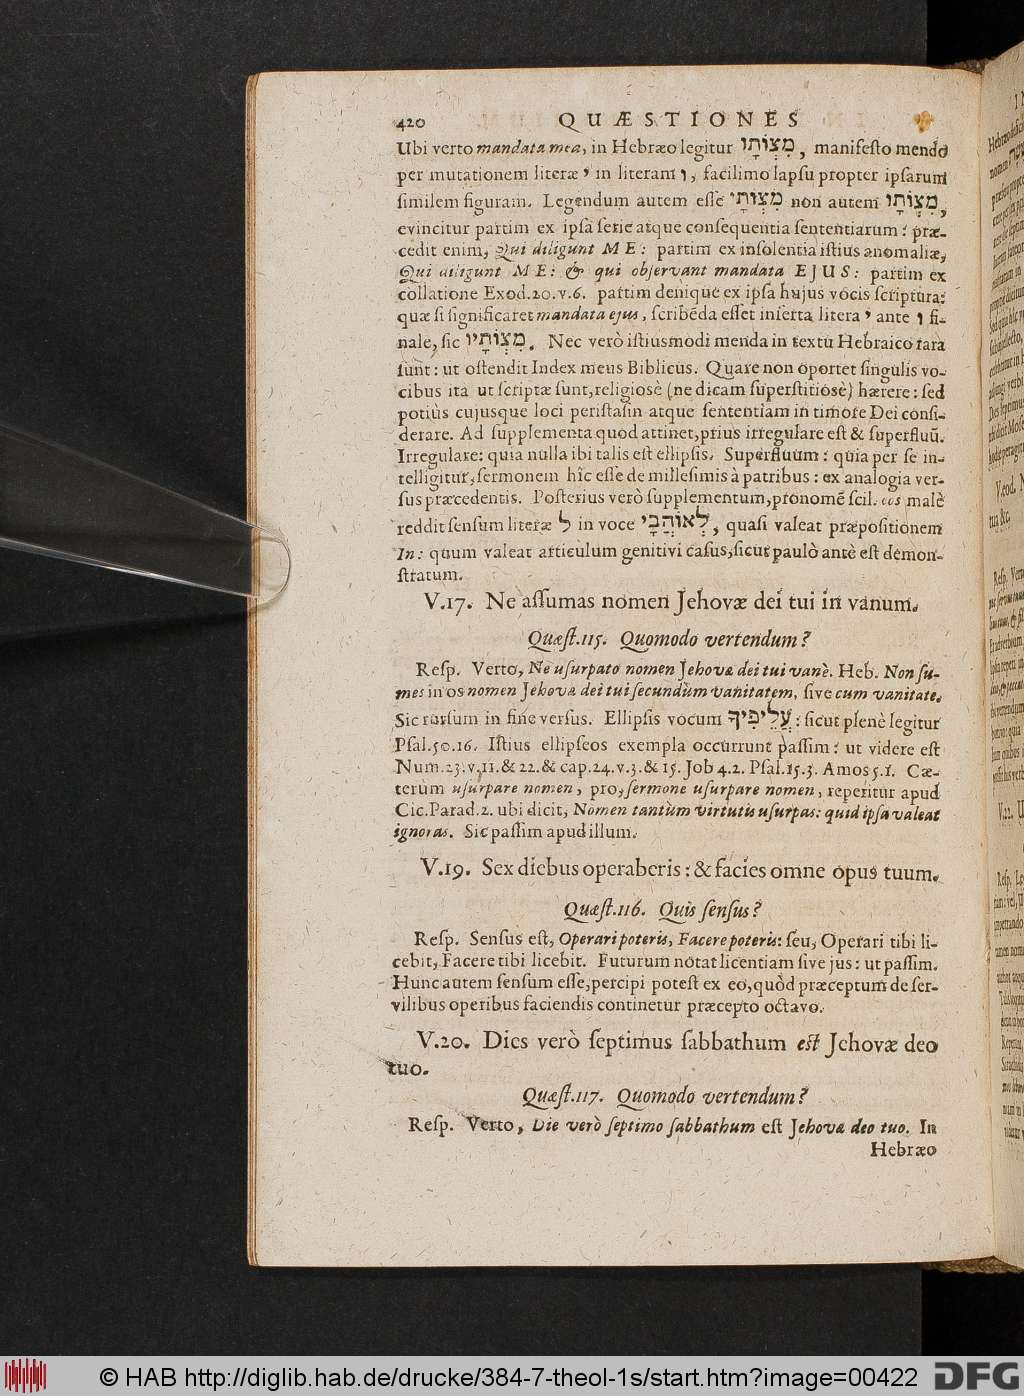 420 QUÆSTIONES
Ubi verto mandata mea, in Hebræo legitur מִצְוֹתָו, manifeſto mendo
per mutationem literæ י in literam ו, facilimo lapſu propter ipſarum
ſimilem figuram. Legendum autem eſſe מִצְוֹתָי non autem מִצְוֹתָו,
evincitur partim ex ipſa ſerie atque conſequentia ſententiarum: præ-
cedit enim, Qui diligunt ME: partim ex inſolentia iſtius anomaliæ,
Qui diligunt ME: & qui obſervant mandata EJUS: partim ex
collatione Exod.20.v.6. partim denique ex ipſa hujus vocis ſcriptura:
quæ ſi ſignificaret mandata ejus, ſcribēda eſſet inſerta litera י ante ו fi-
nale, ſic מִצְוֹתָיו. Nec verò iſtiusmodi menda in textu Hebraico rara
ſunt: ut oſtendit Index meus Biblicus. Quare non oportet ſingulis vo-
cibus ita ut ſcriptæ ſunt, religiosè (ne dicam ſuperſtitiosè) hærere: ſed
potiùs cujusque loci periſtaſin atque ſententiam in timore Dei conſi-
derare. Ad ſupplementa quod attinet, prius irregulare eſt & ſuperfluū.
Irregulare: quia nulla ibi talis eſt ellipſis. Superfluum: quia per ſe in-
telligitur, ſermonem hîc eſſe de milleſimis à patribus: ex analogia ver-
ſus præcedentis. Poſterius verò ſupplementum, pronomē ſcil. eos malè
reddit ſenſum literæ ל in voce לְאוֹהֲבָי, quaſi valeat præpoſitionem
In: quum valeat articulum genitivi caſus, ſicut paulò antè eſt demon-
ſtratum.
V.17. Ne aſſumas nomen Jehovæ dei tui in vanum.
Quæſt.115. Quomodo vertendum?
Reſp. Verto, Ne uſurpato nomen Jehovæ dei tui vanè. Heb. Non ſu-
mes in os nomen Jehovæ dei tui ſecundùm vanitatem, ſive cum vanitate.
Sic rurſum in fine verſus. Ellipſis vocum עֲלֵי פִיךָ: ſicut plenè legitur
Pſal.50.16. Iſtius ellipſeos exempla occurrunt paſſim: ut videre eſt
Num.23.v.11.& 22.& cap.24.v.3.& 15. Job 4.2. Pſal.15.3. Amos 5.1. Cæ-
terùm uſurpare nomen, pro, ſermone uſurpare nomen, reperitur apud
Cic.Parad.2. ubi dicit, Nomen tantùm virtutis uſurpas: quid ipſa valeat
ignoras. Sic paſſim apud illum.
V.19. Sex diebus operaberis: & facies omne opus tuum.
Quæſt.116. Quis ſenſus?
Reſp. Senſus eſt, Operari poteris, Facere poteris: ſeu, Operari tibi li-
cebit, Facere tibi licebit. Futurum notat licentiam ſive jus: ut paſſim.
Hunc autem ſenſum eſſe, percipi poteſt ex eo, quòd præceptum de ſer-
vilibus operibus faciendis continetur præcepto octavo.
V.20. Dies verò ſeptimus ſabbathum est Jehovæ deo
tuo.
Quæſt.117. Quomodo vertendum?
Reſp. Verto, Die verò ſeptimo ſabbathum est Jehovæ deo tuo. In
Hebræo
© HAB http://diglib.hab.de/drucke/384-7-theol-1s/start.htm?image=00422 DFG